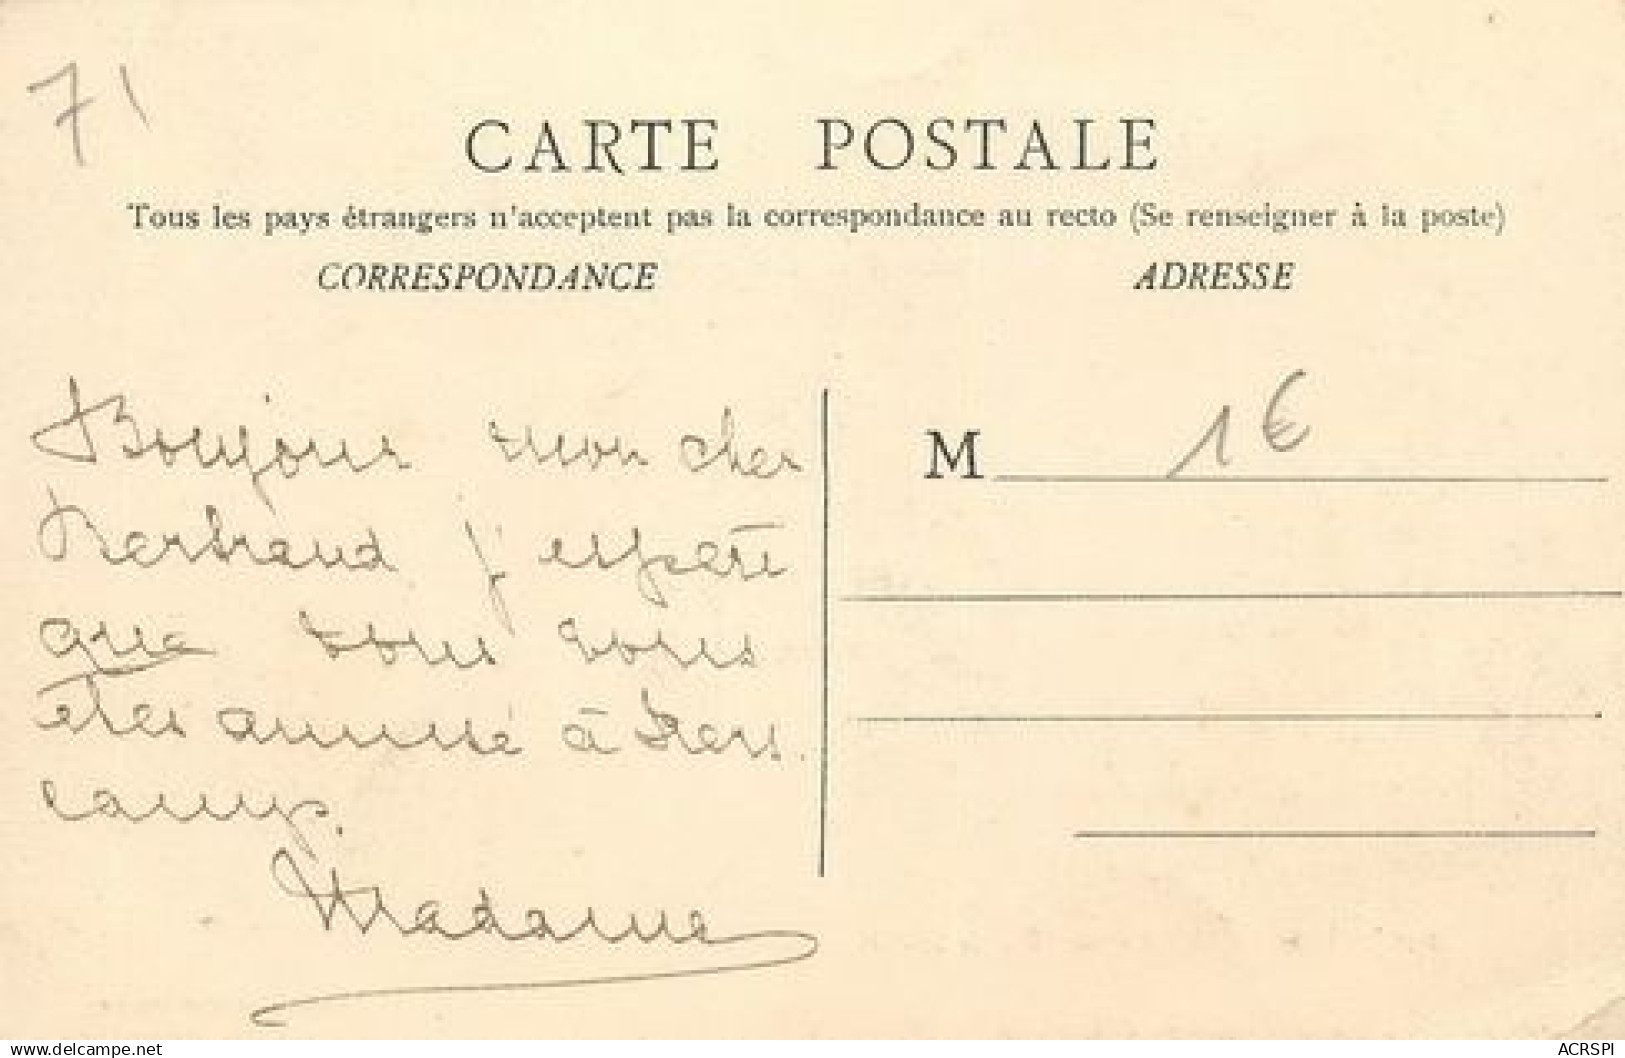 71
CARTE POSTALE
Tous les pays étrangers n'acceptent pas la correspondance au recto (Se renseigner à la poste)
CORRESPONDANCE
ADRESSE
Bonjour mon cher
j'espère
que vous vous
êtes amusé à
camp.
Madame
M 1€
www.delcampe.net
ACRSPI